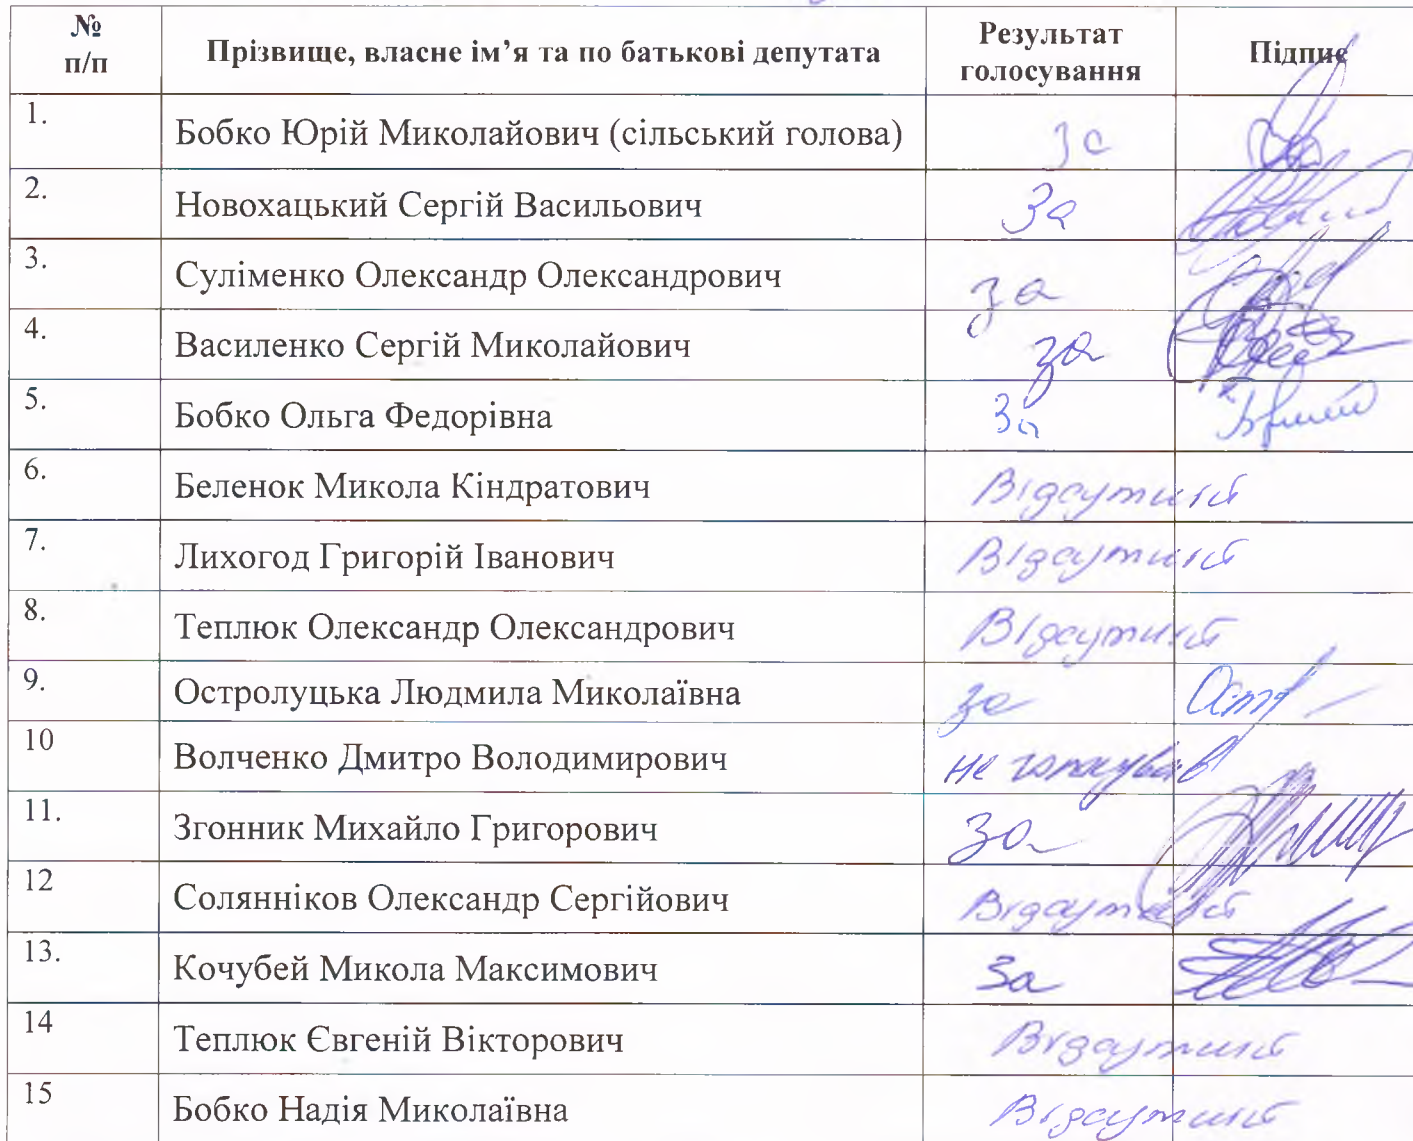 № п/п Прізвище, власне ім’я та по батькові депутата Результат голосування Підпис
1. Бобко Юрій Миколайович (сільський голова) за
2. Новохацький Сергій Васильович За
3. Суліменко Олександр Олександрович за
4. Василенко Сергій Миколайович за
5. Бобко Ольга Федорівна За
6. Беленок Микола Кіндратович Відсутній
7. Лихогод Григорій Іванович Відсутній
8. Теплюк Олександр Олександрович Відсутній
9. Остролуцька Людмила Миколаївна за
10 Волченко Дмитро Володимирович не голосував
11. Згонник Михайло Григорович За
12 Солянніков Олександр Сергійович Відсутній
13. Кочубей Микола Максимович За
14 Теплюк Євгеній Вікторович Відсутній
15 Бобко Надія Миколаївна Відсутній